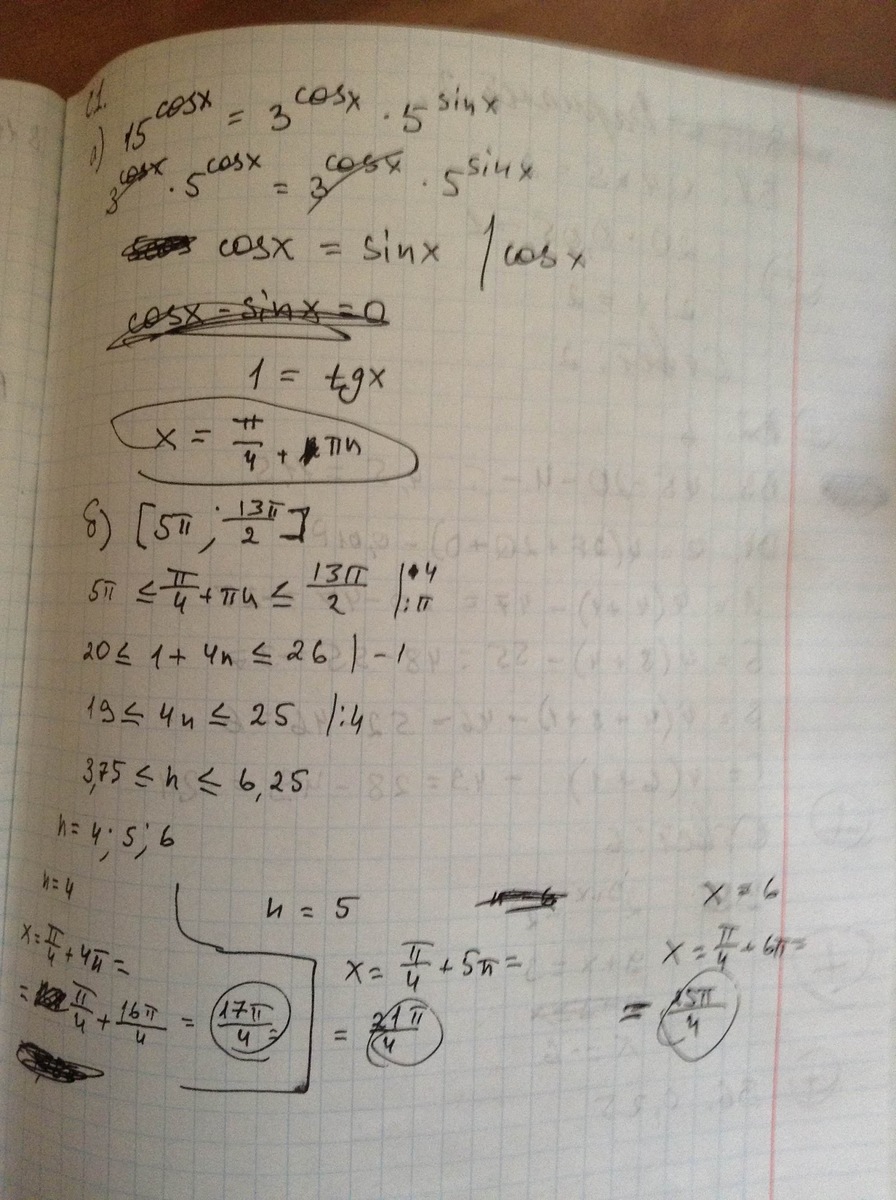 С1.
а) 15^cosx = 3^cosx · 5^sinx
3^cosx · 5^cosx = 3^cosx · 5^sinx
cosx = sinx | cosx
cosx - sinx = 0
1 = tgx
x = π/4 + πn
б) [5π ; 13π/2]
5π ≤ π/4 + πn ≤ 13π/2 | ·4 | :π
20 ≤ 1 + 4n ≤ 26 | -1
19 ≤ 4n ≤ 25 | :4
3,75 ≤ n ≤ 6,25
n = 4; 5; 6
n = 4
x = π/4 + 4π =
= π/4 + 16π/4 = 17π/4 =
n = 5
x = π/4 + 5π =
= 21π/4
n = 6
x = 6
x = π/4 + 6π =
= 25π/4